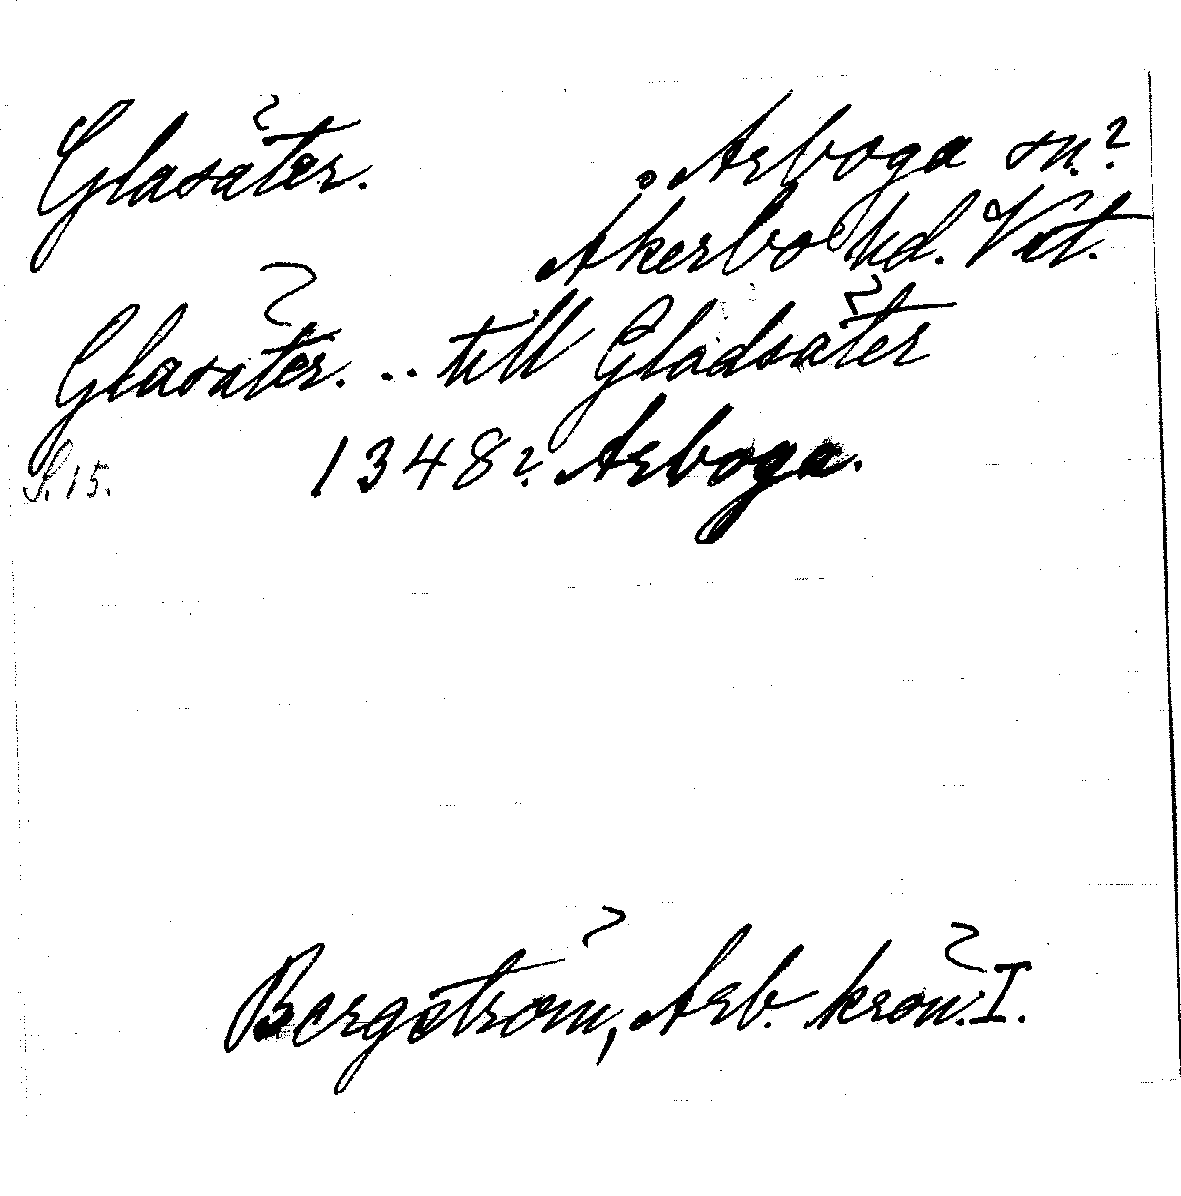 Glasäter.
Arboga sn?
Åkerbo hd. Vst.
Glasäter. .. till Gladsäter
S. 15. 1348? Arboga.
Bergström, Arb. krön. I.